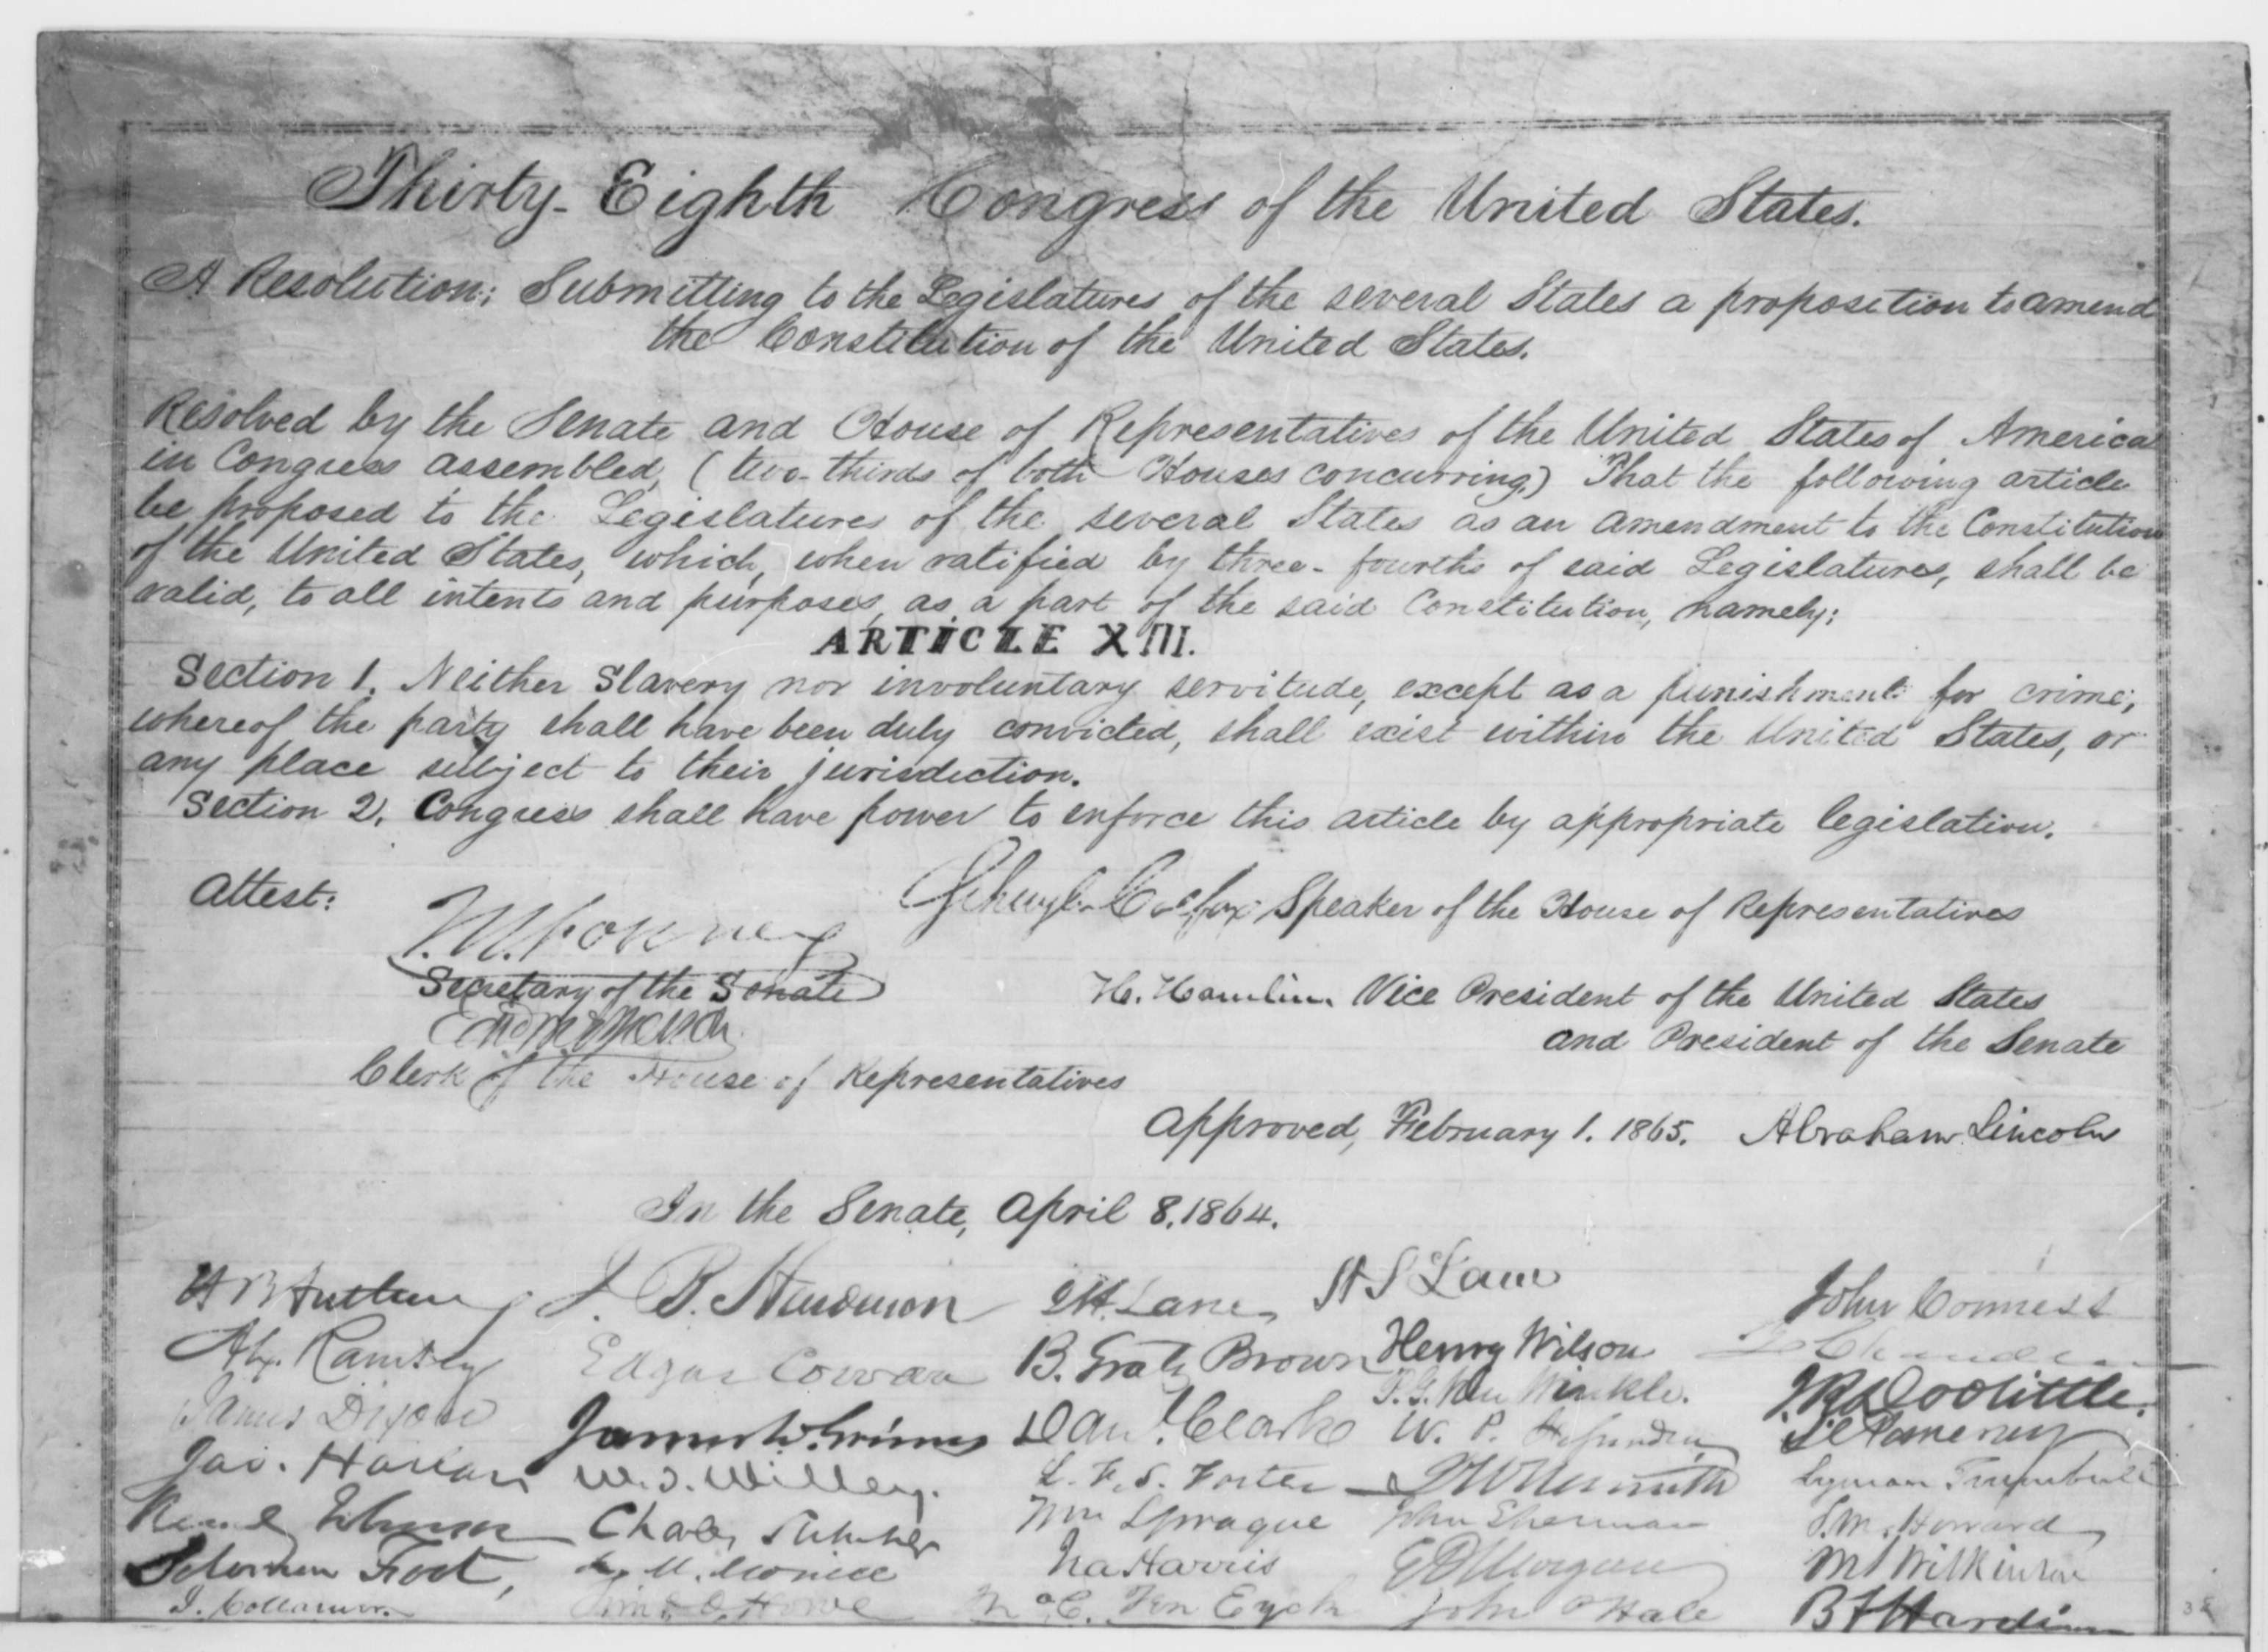 Thirty-Eighth Congress of the United States.
A Resolution; Submitting to the Legislatures of the several States a proposition to amend
the Constitution of the United States.
Resolved by the Senate and House of Representatives of the United States of America
in Congress assembled, (two-thirds of both Houses concurring,) That the following article
be proposed to the Legislatures of the several States as an amendment to the Constitution
of the United States, which, when ratified by three-fourths of said Legislatures, shall be
valid, to all intents and purposes, as a part of the said Constitution, namely:
ARTICLE XIII.
Section 1. Neither Slavery nor involuntary servitude, except as a punishment for crime,
whereof the party shall have been duly convicted, shall exist within the United States, or
any place subject to their jurisdiction.
Section 2. Congress shall have power to enforce this article by appropriate legislation.
Attest:
Schuyler Colfax Speaker of the House of Representatives
J.W. Forney
Secretary of the Senate
H. Hamlin Vice President of the United States
and President of the Senate
Clerk of the House of Representatives
Approved, February 1. 1865. Abraham Lincoln
In the Senate, April 8. 1864.
J. B. Henderson J.H. Lane H S Lane John Conness
Alex. Ramsey Edgar Cowan B. Gratz Brown Henry Wilson Chandler
James Dixon James W. Grimes Dan. Clark P. G. Van Winkle. J. R. Doolittle.
W. P. Fessenden
Jas. Harlan W. T. Willey. L. F. S. Foster J W Nesmith Lyman Trumbull
Charles Sumner Wm Sprague John Sherman J. M. Howard
Solomon Foot, Ira Harris E D Morgan M S Wilkinson
J. Collamer. Tim. O. Howe Jno. C. Ten Eyck John P Hale B F Harding